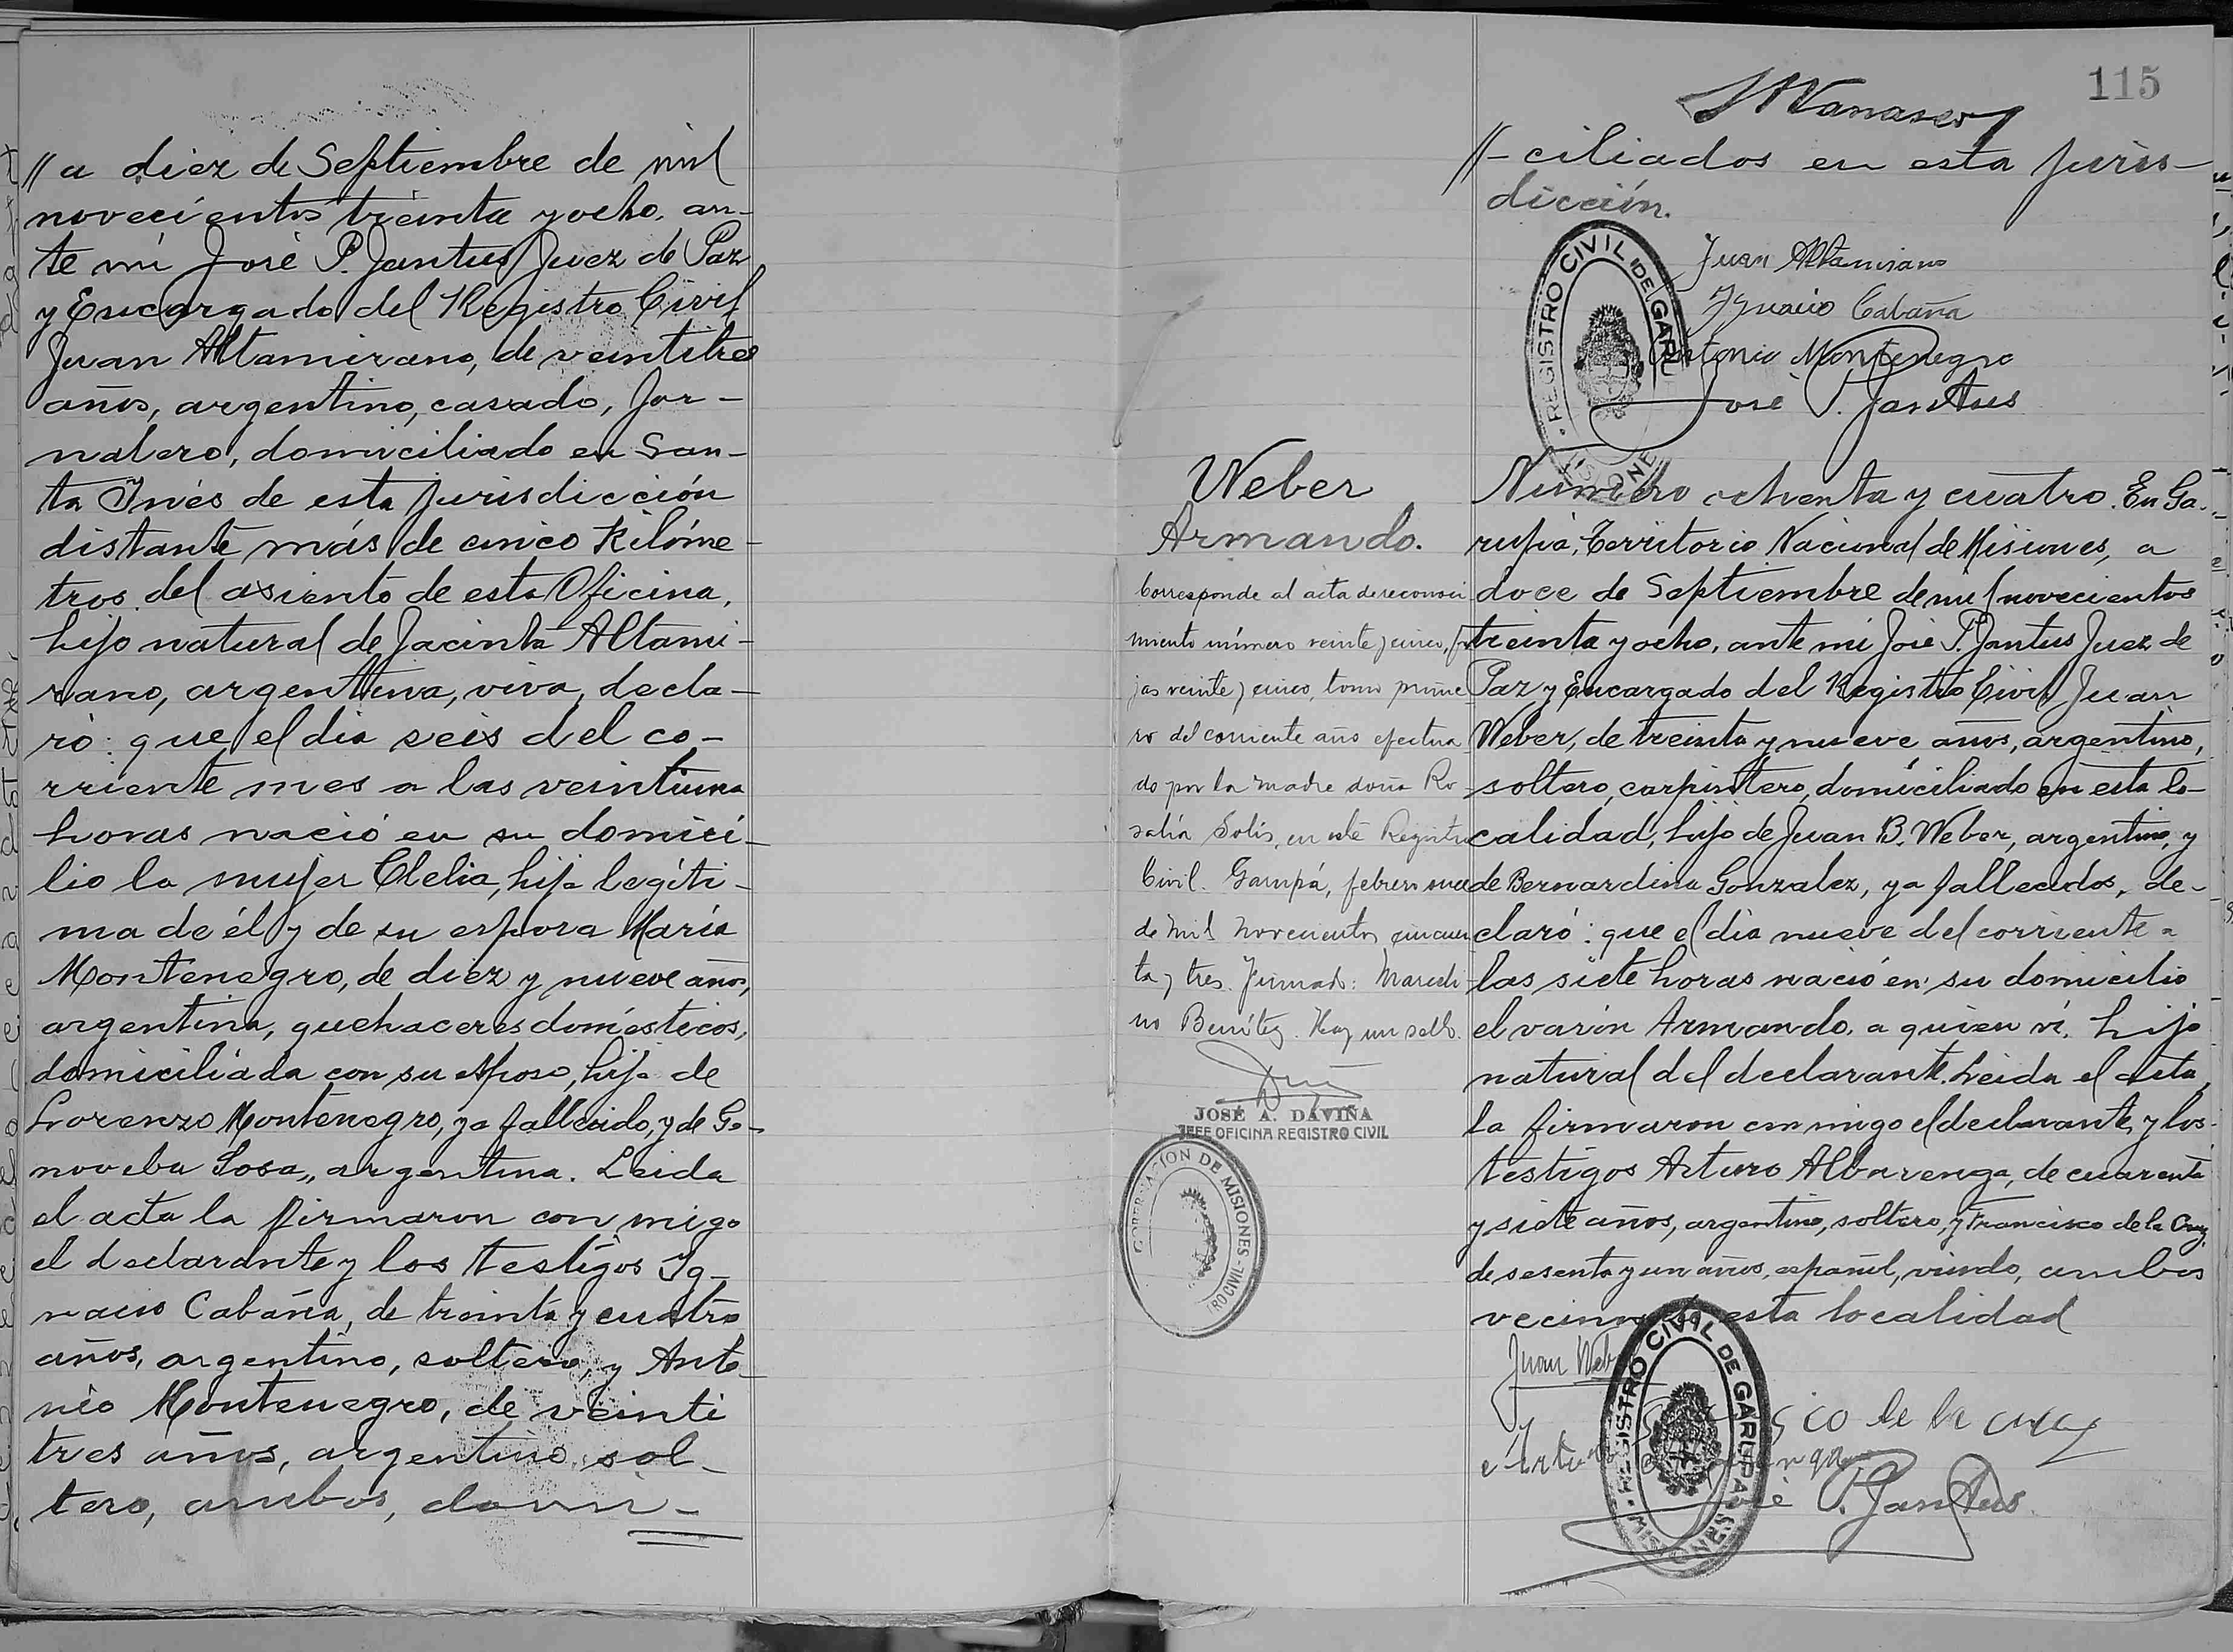 // a diez de Septiembre de mil
novecientos treinta y ocho, an-
te mi José P. Jantus Juez de Paz
y Encargado del Registro Civil
Juan Altamirano, de veintitres
años, argentino, casado, Jor-
nalero, domiciliado en San-
ta Inés de esta jurisdicción
distante más de cinco Kilóme-
tros del asiento de esta Oficina,
hijo natural de Jacinta Altami-
rano, argentina, viva, decla-
ró: que el dia seis del co-
rriente mes a las veintiuna
horas nació en su domici-
lio la mujer Clelia, hija legíti-
ma de él y de su esposa María
Montenegro, de diez y nueve años,
argentina, quehaceres domésticos,
domiciliada con su esposo, hija de
Lorenzo Montenegro, ya fallecido, y de Ge-
noveba Sosa, argentina. Leida
el acta la firmaron conmigo
el declarante y los testigos Ig-
nacio Cabaña, de treinta y cuatro
años, argentino, soltero, y Anto-
nio Montenegro, de veinti
tres años, argentino, sol-
tero, ambos, domi-
115
//-ciliados en esta juris-
dicción.
REGISTRO CIVIL DE GARUPA
Juan Altamirano
Ignacio Cabaña
Antonio Montenegro
José P. Jantus
Weber
Armando.
Corresponde al acta de reconoci
miento número veinte y cinco, fo
jas veinte y cinco, tomo prime
ro del corriente año efectua
do por la madre doña Ro
salía Solís, en este Registro
Civil. Garupá, febrero
de mil novecientos cincuen
ta y tres. Firmado: Marceli
no Benítez. Hay un sello.
JOSÉ A. DAVIÑA
JEFE OFICINA REGISTRO CIVIL
GOBERNACION DE MISIONES - REGISTRO CIVIL
Número ochenta y cuatro. En Ga-
rupá, Territorio Nacional de Misiones, a
doce de Septiembre de mil novecientos
treinta y ocho, ante mi José P. Jantus Juez de
Paz y Encargado del Registro Civil Juan
Weber, de treinta y nueve años, argentino,
soltero, carpintero, domiciliado en esta lo-
calidad, hijo de Juan B. Weber, argentino, y
de Bernardina Gonzalez, ya fallecidos, de-
claró: que el dia nueve del corriente a
las siete horas nació en su domicilio
el varón Armando, a quien vi, hijo
natural del declarante. Leida el acta,
la firmaron conmigo el declarante, y los
testigos Arturo Albarenga, de cuarenta
y siete años, argentino, soltero, y Francisco de la Cruz,
de sesenta y un años, español, viudo, ambos
vecinos de esta localidad
Juan Web
REGISTRO CIVIL DE GARUPA
MISIONES
de la cruz
José P. Jantus